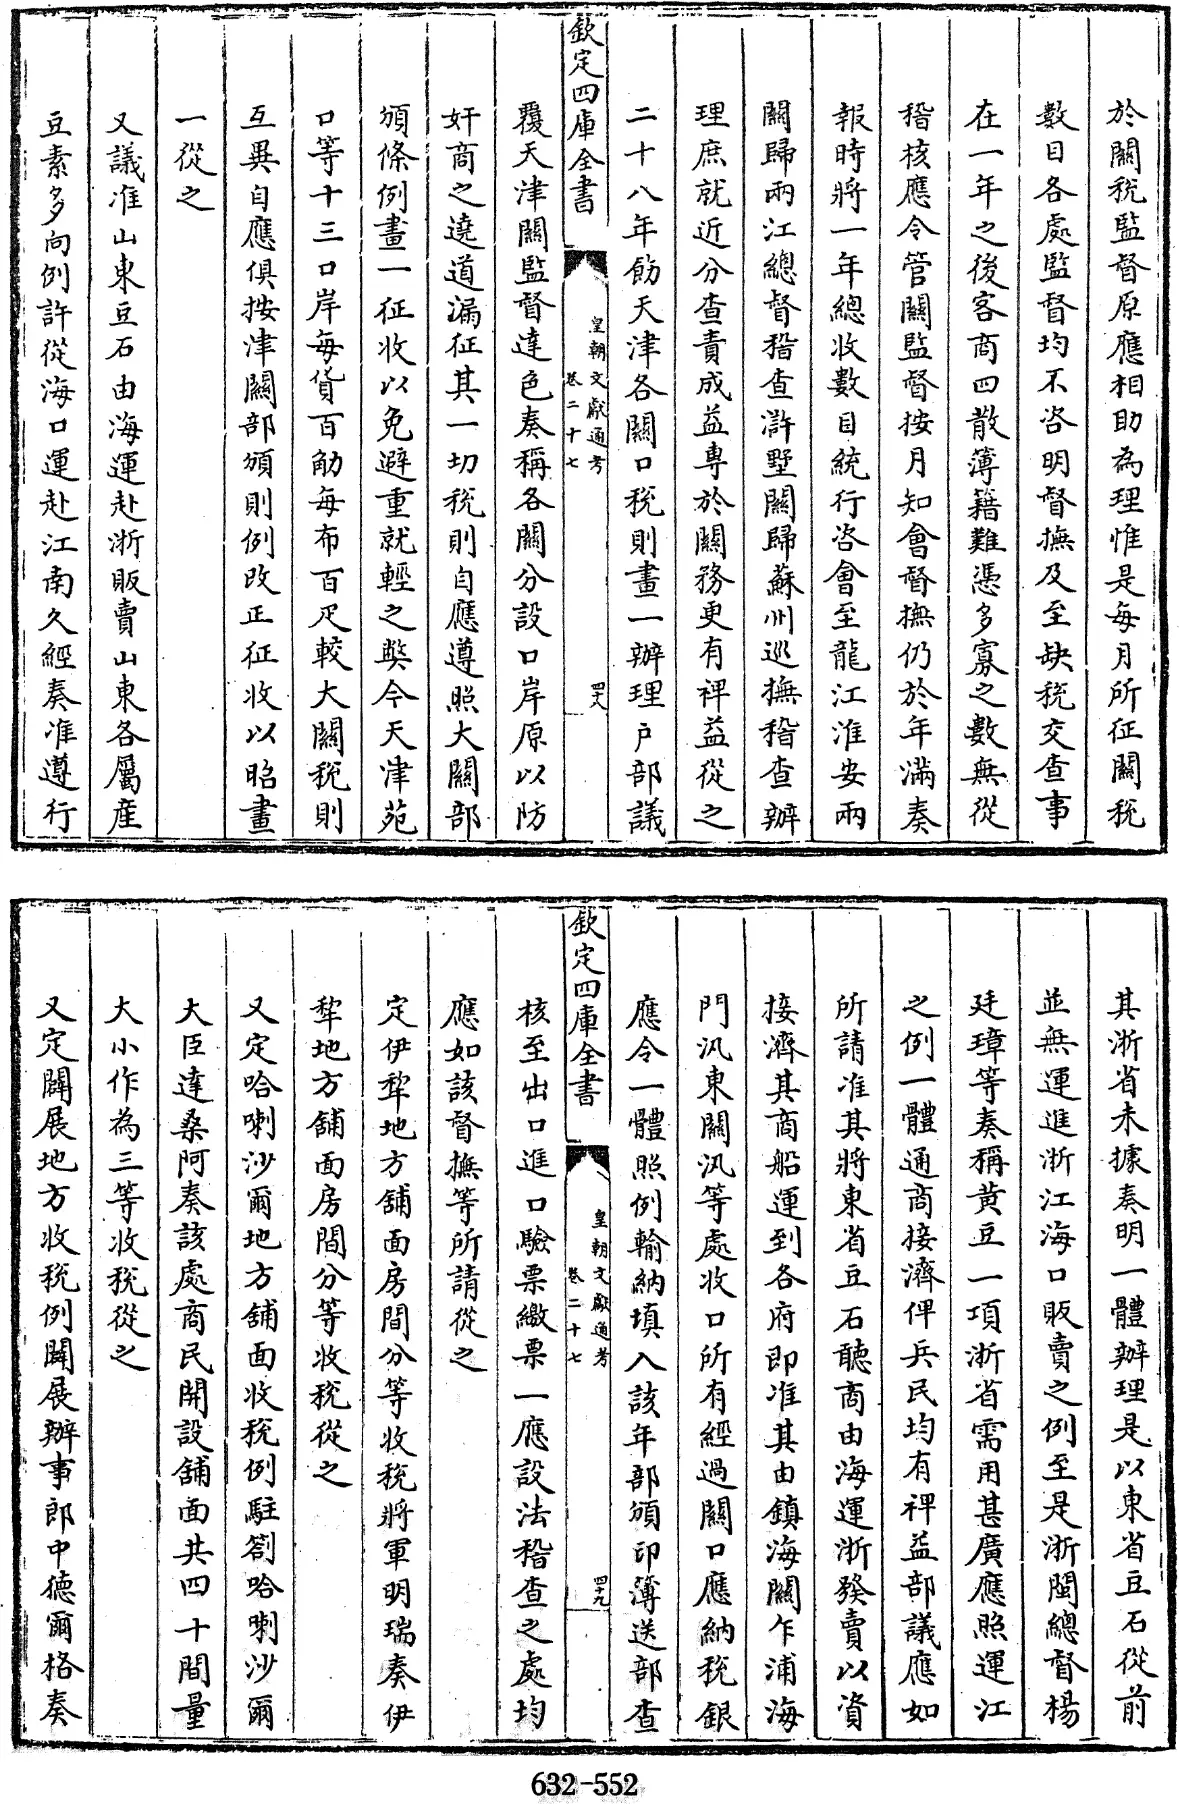 於關稅監督原應相助為理惟是每月所征關稅
數目各處監督均不咨明督撫及至缺稅交查事
在一年之後客商四散簿籍難憑多寡之數無從
稽核應令管關監督按月知會督撫仍於年滿奏
報時將一年總收數目統行咨會至龍江淮安兩
關歸兩江總督稽查滸墅關歸蘇州巡撫稽查辦
理庶就近分查責成益專於關務更有裨益從之
二十八年飭天津各關口稅則畫一辦理户部議
欽定四庫全書
皇朝文獻通考
卷二十七
四十八
覆天津關監督達色奏稱各關分設口岸原以防
奸商之遶道漏征其一切稅則自應遵照大關部
頒條例畫一征收以免避重就輕之弊今天津苑
口等十三口岸每貨百觔每布百疋較大關稅則
互異自應俱按津關部頒則例改正征收以昭畫
一從之
又議准山東豆石由海運赴浙販賣山東各屬産
豆素多向例許從海口運赴江南久經奏准遵行
其浙省未據奏明一體辦理是以東省豆石從前
並無運進浙江海口販賣之例至是浙閩總督楊
廷璋等奏稱黄豆一項浙省需用甚廣應照運江
之例一體通商接濟俾兵民均有裨益部議應如
所請准其將東省豆石聽商由海運浙發賣以資
接濟其商船運到各府即准其由鎮海關乍浦海
門汛東關汛等處收口所有經過關口應納稅銀
應令一體照例輸納填入該年部頒印簿送部查
欽定四庫全書
皇朝文獻通考
卷二十七
四十九
核至出口進口驗票繳票一應設法稽查之處均
應如該督撫等所請從之
定伊犂地方舖面房間分等收稅將軍明瑞奏伊
犂地方舖面房間分等收稅從之
又定哈喇沙爾地方舖面收稅例駐劄哈喇沙爾
大臣達桑阿奏該處商民開設舖面共四十間量
大小作為三等收稅從之
又定闢展地方收稅例闢展辦事郎中德爾格奏
632-552